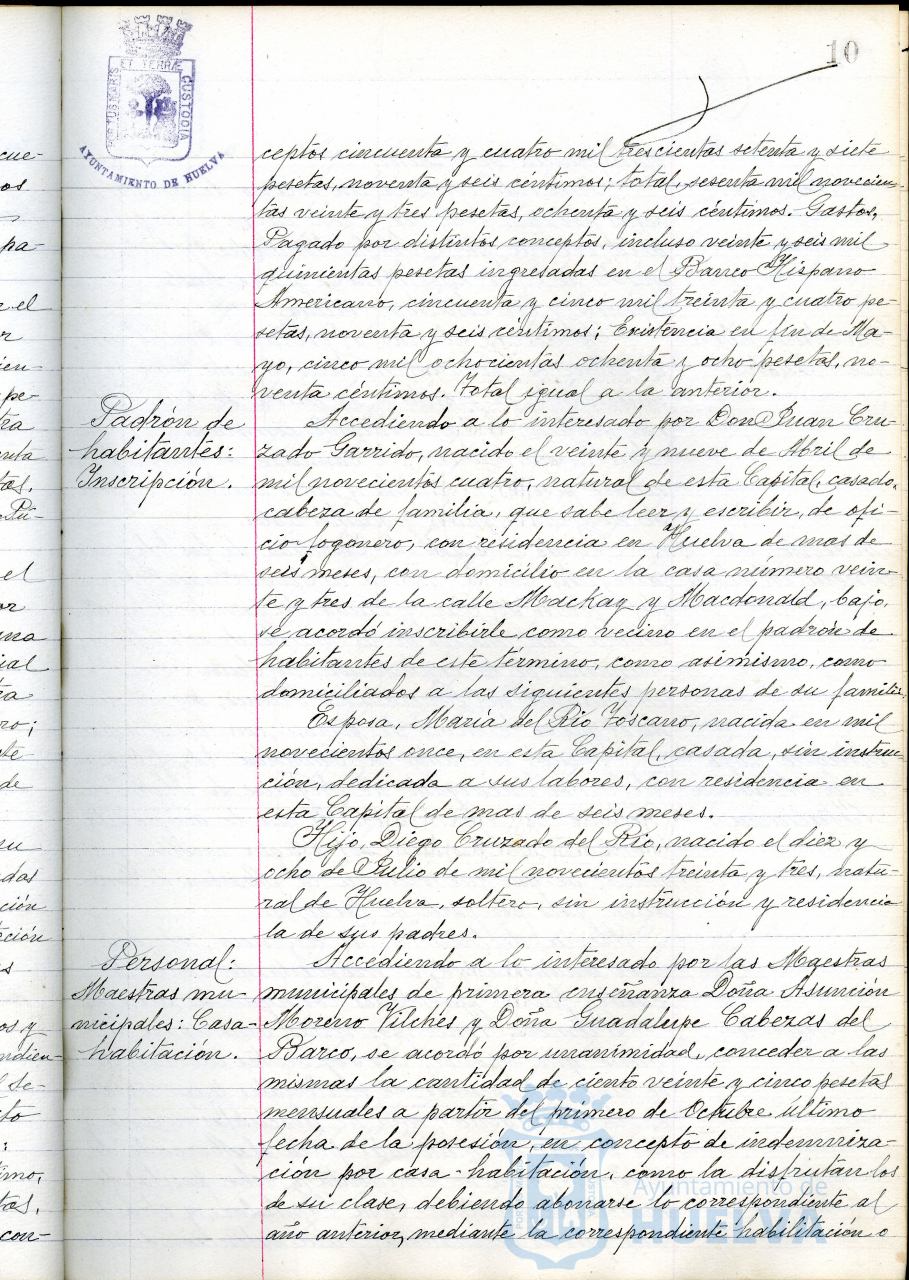 10
PORTUS MARIS ET TERRÆ CUSTODIA
AYUNTAMIENTO DE HUELVA
ceptos cincuenta y cuatro mil trescientas setenta y siete
pesetas, noventa y seis céntimos; total, sesenta mil novecien-
tas veinte y tres pesetas, ochenta y seis céntimos. Gastos,
Pagado por distintos conceptos, incluso veinte y seis mil
quinientas pesetas ingresadas en el Banco Hispano
Americano, cincuenta y cinco mil treinta y cuatro pe-
setas, noventa y seis céntimos; Existencia en fin de Ma-
yo, cinco mil ochocientas ochenta y ocho pesetas, no-
venta céntimos. Total igual a la anterior.
Padrón de
habitantes:
Inscripción.
Accediendo a lo interesado por Don Juan Cru-
zado Garrido, nacido el veinte y nueve de Abril de
mil novecientos cuatro, natural de esta Capital, casado,
cabeza de familia, que sabe leer y escribir, de ofi-
cio fogonero, con residencia en Huelva de mas de
seis meses, con domicilio en la casa número vein-
te y tres de la calle Mackay y Macdonald, bajo,
se acordó inscribirle como vecino en el padrón de
habitantes de este término, como asimismo, como
domiciliados a las siguientes personas de su familia.
Esposa, María del Río Toscano, nacida en mil
novecientos once, en esta Capital, casada, sin instruc-
ción, dedicada a sus labores, con residencia en
esta Capital de mas de seis meses.
Hijo, Diego Cruzado del Río, nacido el diez y
ocho de Julio de mil novecientos treinta y tres, natu-
ral de Huelva, soltero, sin instrucción y residencia
la de sus padres.
Personal:
Maestras mu-
nicipales: Casa-
habitación.
Accediendo a lo interesado por las Maestras
municipales de primera enseñanza Doña Asunción
Moreno Vilches y Doña Guadalupe Cabezas del
Barco, se acordó por unanimidad, conceder a las
mismas la cantidad de ciento veinte y cinco pesetas
mensuales a partir del primero de Octubre último
fecha de la posesión, en concepto de indemniza-
ción por casa-habitación, como la disfrutan los
de su clase, debiendo abonarse lo correspondiente al
año anterior, mediante la correspondiente habilitación o
Ayuntamiento de
HUELVA